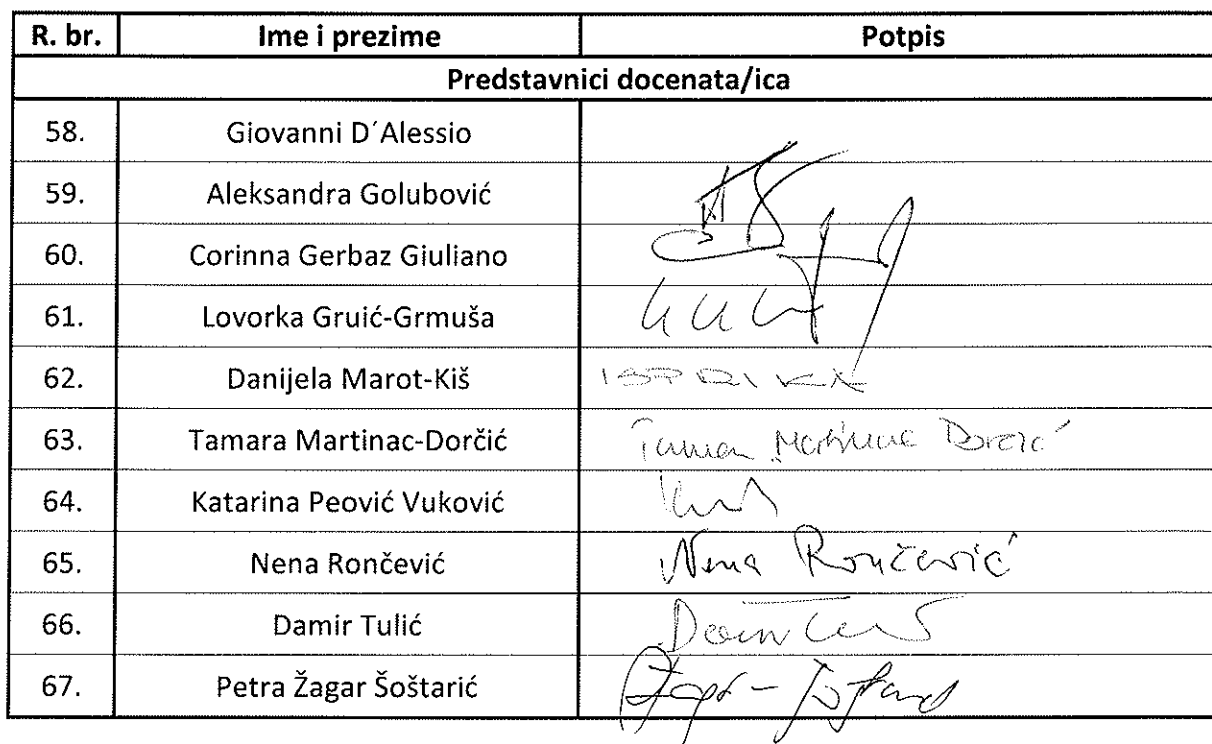 R. br. Ime i prezime Potpis
Predstavnici docenata/ica
58. Giovanni D´Alessio
59. Aleksandra Golubović
60. Corinna Gerbaz Giuliano
61. Lovorka Gruić-Grmuša
62. Danijela Marot-Kiš
63. Tamara Martinac-Dorčić Tamara Martinac Dorčić
64. Katarina Peović Vuković
65. Nena Rončević Nena Rončević
66. Damir Tulić
67. Petra Žagar Šoštarić